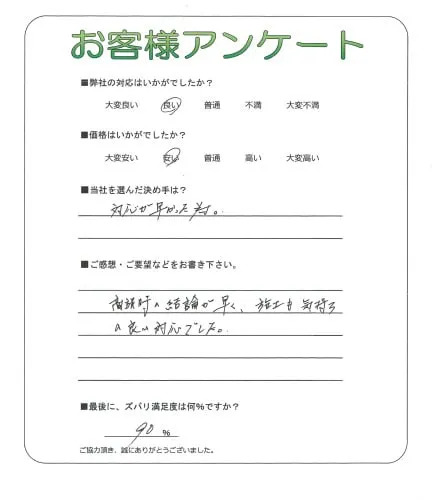 お客様アンケート
■弊社の対応はいかがでしたか？
大変良い 良い 普通 不満 大変不満
■価格はいかがでしたか？
大変安い 安い 普通 高い 大変高い
■当社を選んだ決め手は？
対応が早かった為。
■ご感想・ご要望などをお書き下さい。
商談時の結論が早く、施工も気持ち
の良い対応でした。
■最後に、ズバリ満足度は何％ですか？
90 ％
ご協力頂き、誠にありがとうございました。